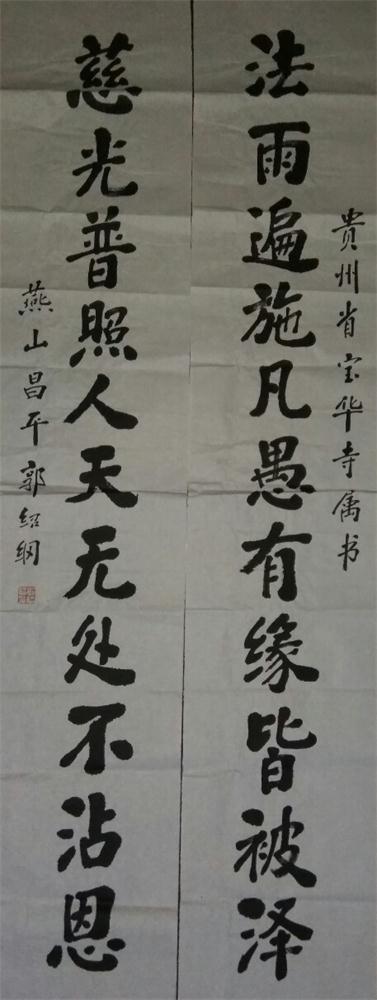 贵州省宝华寺属书
法雨遍施凡愚有缘皆被泽
慈光普照人天无处不沾恩
燕山昌平郭绍纲